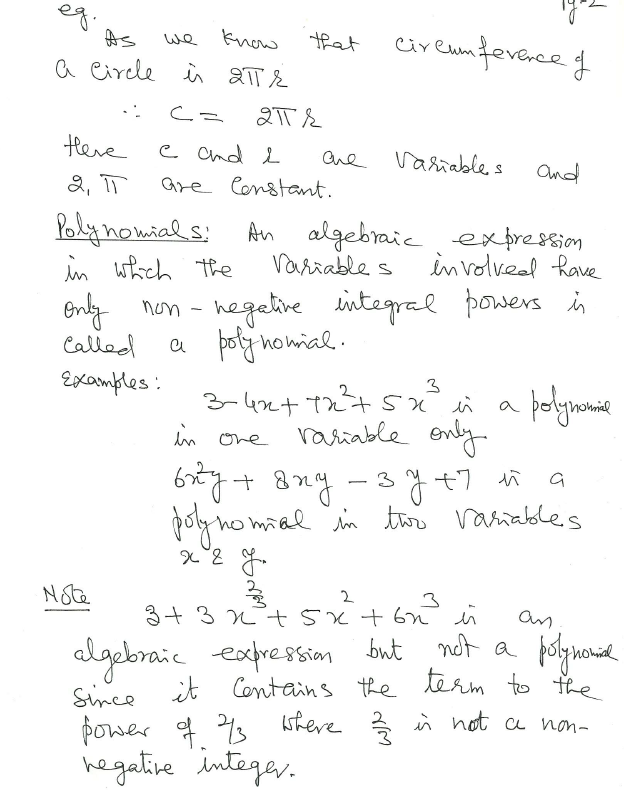 eg. pg-2
As we know that circumference of
a circle is 2πr
∴ C = 2πr
Here c and r are Variables and
2, π are Constant.
Polynomials: An algebraic expression
in which the Variables involved have
only non-negative integral powers is
called a polynomial.
Examples:
3-4x+7x²+5x³ is a polynomial
in one variable only
6x²y + 8xy - 3y + 7 is a
polynomial in two Variables
x & y.
Note
3 + 3x^(2/3) + 5x² + 6x³ is an
algebraic expression but not a polynomial
Since it Contains the term to the
power of 2/3 where 2/3 is not a non-
negative integer.